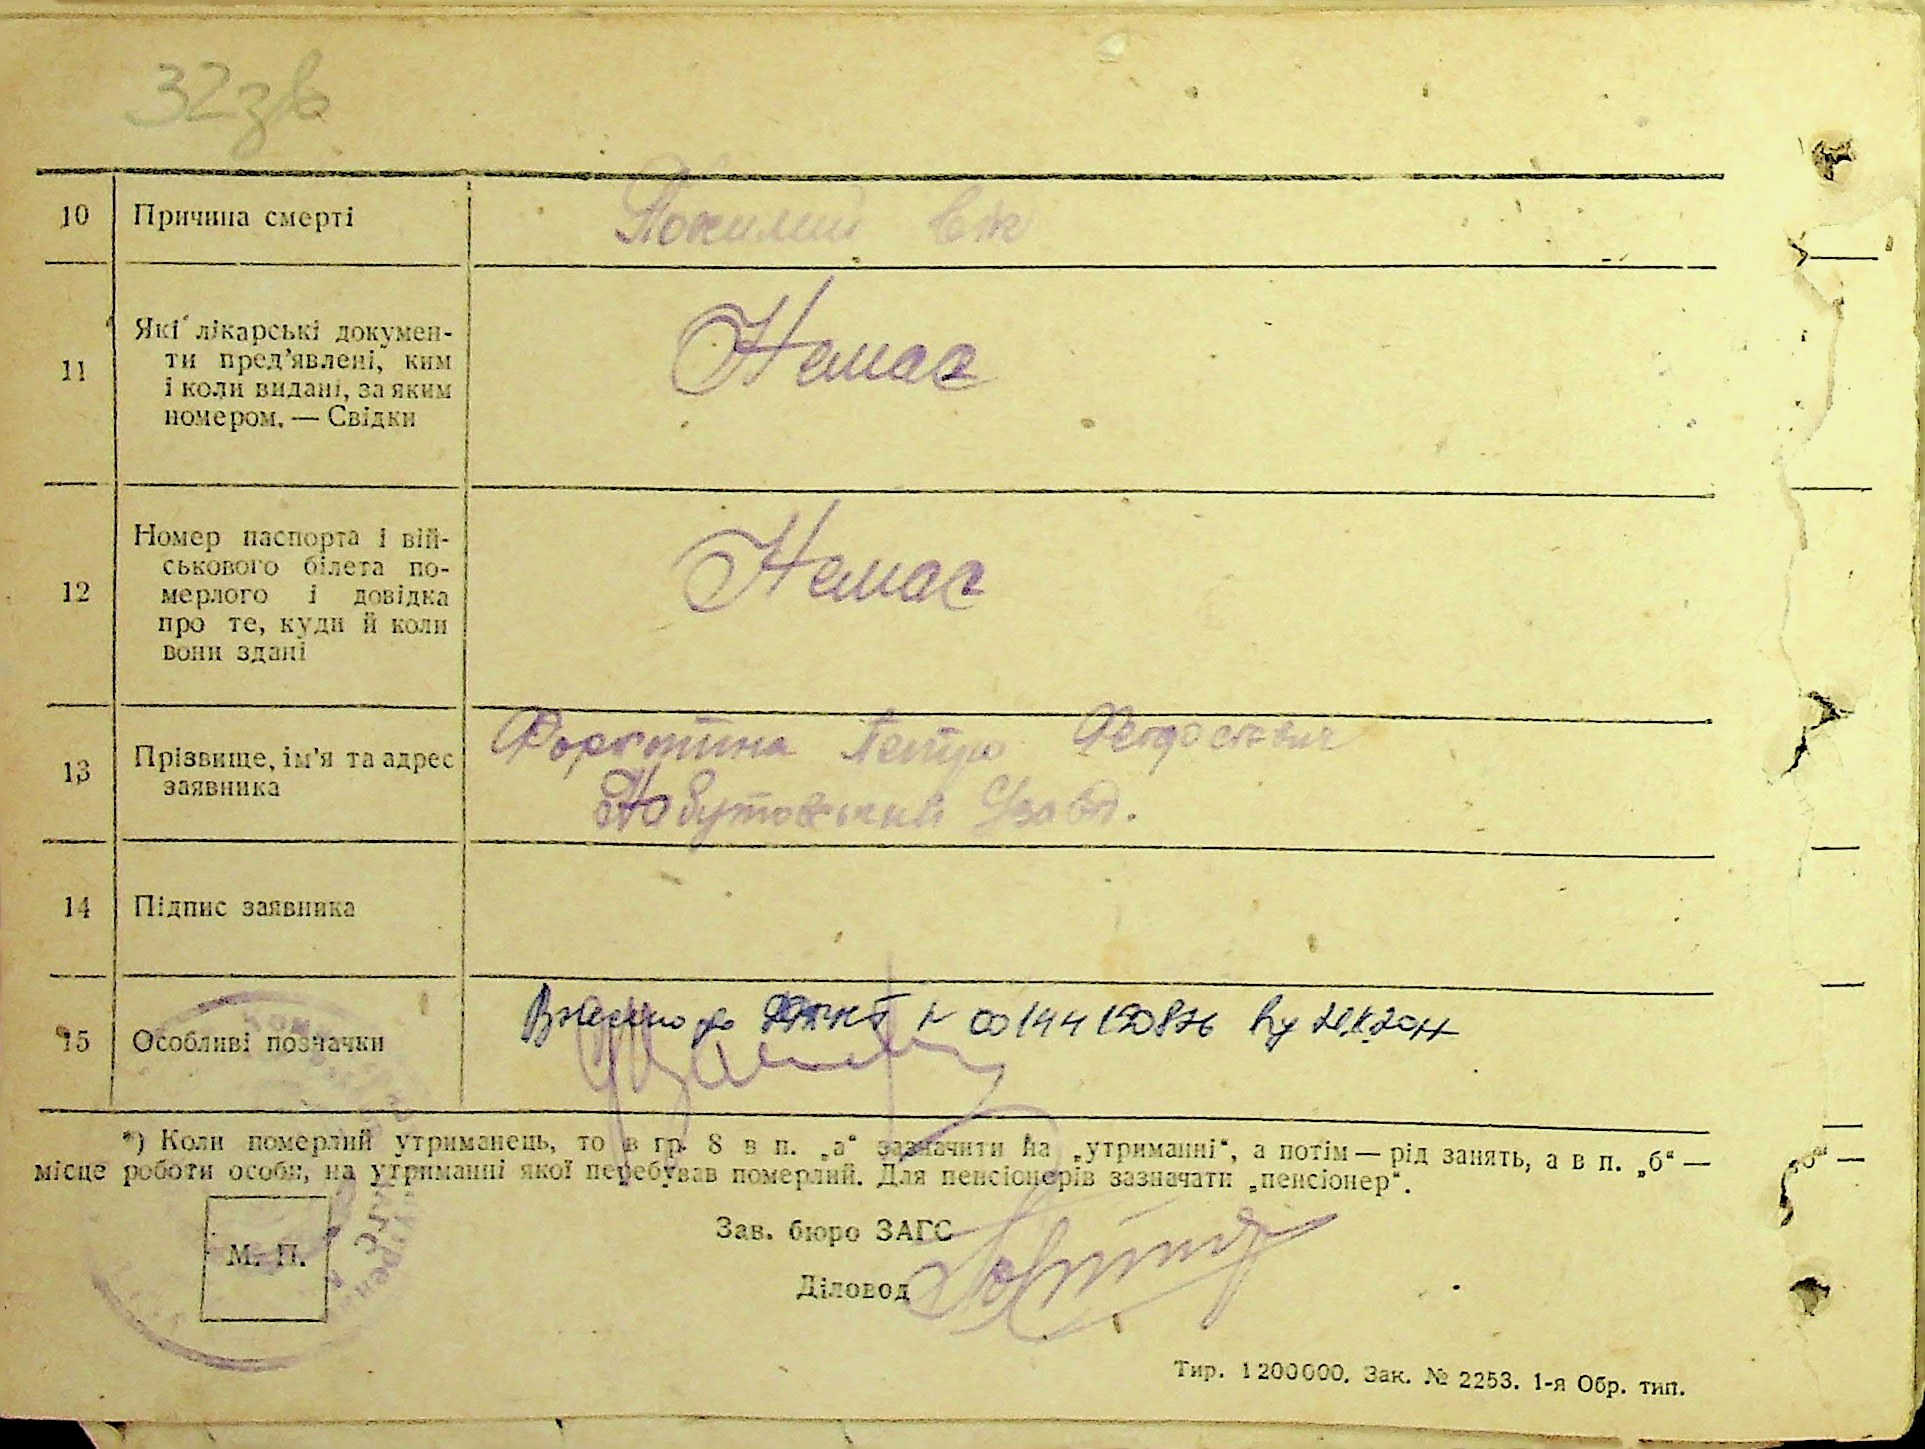 32зв
10 Причина смерті Похилий вік
11 Які лікарські докумен-
ти пред'явлені, ким
і коли видані, за яким
номером. — Свідки
Немає
12 Номер паспорта і вій-
ськового білета по-
мерлого і довідка
про те, куди й коли
вони здані
Немає
13 Прізвище, ім'я та адрес
заявника
Петро
14 Підпис заявника
15 Особливі позначки
Внесено до № 00144150876
*) Коли померлий утриманець, то в гр. 8 в п. „а“ зазначити на „утриманні“, а потім — рід занять, а в п. „б“ —
місце роботи особи, на утриманні якої перебував померлий. Для пенсіонерів зазначати „пенсіонер“.
М. П.
Зав. бюро ЗАГС
Діловод
Тир. 1200000. Зак. № 2253. 1-я Обр. тип.